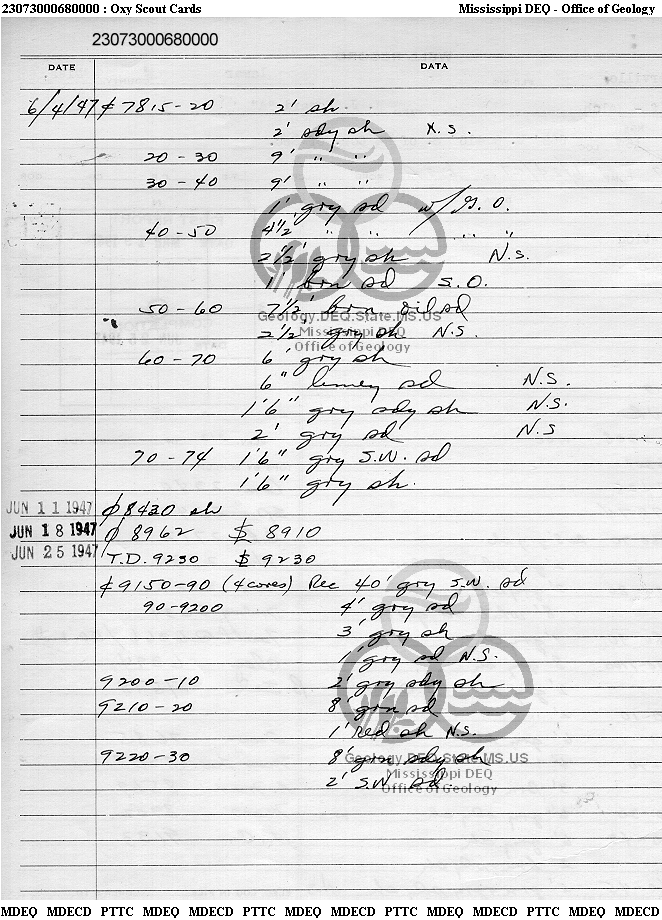 23073000680000 : Oxy Scout Cards Mississippi DEQ - Office of Geology
23073000680000
DATE DATA
6/4/47 ¢ 7815-20 2' sh.
2' sdy sh N.S.
20-30 9' " "
30-40 9' " "
1' gry sd w/G.O.
40-50 4½' " " " "
2½' gry sh N.S.
1' brn sd S.O.
50-60 7½' brn oil sd
Geology.DEQ.State.MS.US
2½' gry sh N.S.
Mississippi DEQ
Office of Geology
60-70 6' gry sh
6" limey sd N.S.
1'6" gry sdy sh N.S.
2' gry sd N.S
70-74 1'6" gry S.W. sd
1'6" gry sh.
JUN 11 1947 ϕ 8430 sh
JUN 18 1947 ϕ 8962 $ 8910
JUN 25 1947 T.D. 9230 $ 9230
¢ 9150-90 (4 cores) Rec 40' gry S.W. sd
90-9200 4' gry sd
3' gry sh
1' gry sd N.S.
9200-10 2' gry sdy sh
9210-20 8' grn sd
1' red sh N.S.
9220-30 8' grn sdy sh
Geology.DEQ.State.MS.US
Mississippi DEQ
2' S.W. sd
Office of Geology
MDEQ MDECD PTTC MDEQ MDECD PTTC MDEQ MDECD PTTC MDEQ MDECD PTTC MDEQ MDECD